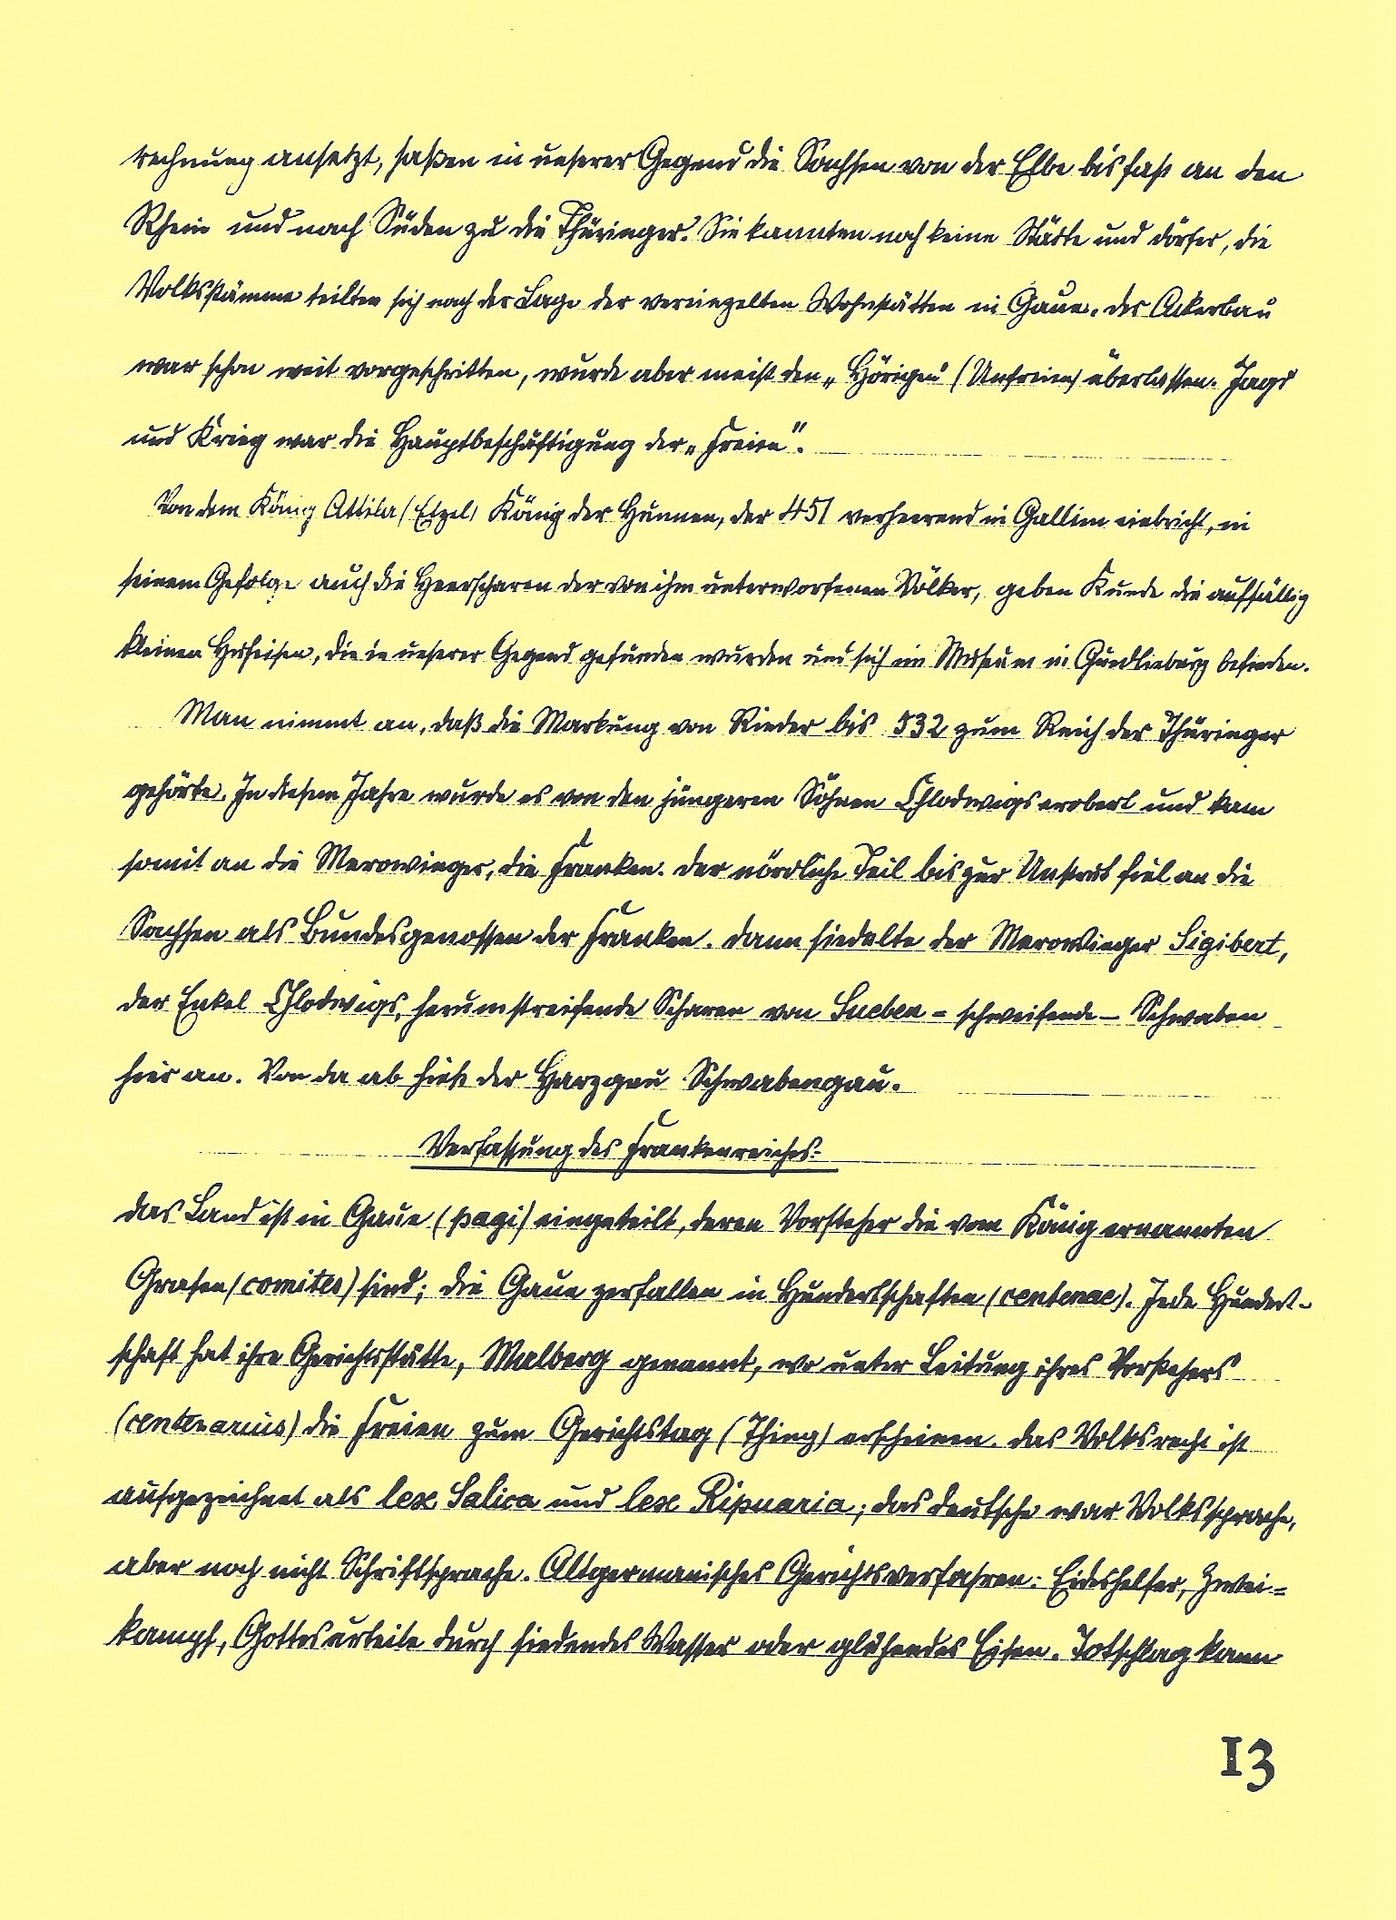 rechnung ansetzt, saßen in unserer Gegend die Sachsen von der Elbe bis fast an den
Rhein und nach Süden zu die Thüringer. Sie kannten noch keine Städte und Dörfer, die
Volksstämme teilten sich nach der Lage der vereinzelten Wohnstätten in Gaue. Der Ackerbau
war schon weit vorgeschritten, wurde aber meist den „Hörigen" (Unfreien) überlassen. Jagd
und Krieg war die Hauptbeschäftigung der „Freien".
Von dem König Attila (Etzel) König der Hunnen, der 451 verheerend in Gallien einbricht, in
seinem Gefolge auch die Heerscharen der von ihm unterworfenen Völker, geben Kunde die auffällig
kleinen Hufeisen, die in unserer Gegend gefunden wurden und sich im Museum in Quedlinburg befinden.
Man nimmt an, daß die Markung von Rieder bis 532 zum Reich der Thüringer
gehörte. In diesem Jahre wurde es von den jüngeren Söhnen Chlodwigs erobert und kam
somit an die Merowinger, die Franken. Der nördliche Teil bis zur Unstrut fiel an die
Sachsen als Bundesgenossen der Franken. Dann siedelte der Merowinger Sigibert,
der Enkel Chlodwigs, herumstreifende Scharen von Sueben = schweifende – Schwaben
hier an. Von da ab hieß der Harzgau Schwabengau.
Verfassung des Frankenreiches:
Das Land ist in Gaue (pagi) eingeteilt, deren Vorsteher die vom König ernannten
Grafen (comites) sind; die Gaue zerfallen in Hundertschaften (centenae). Jede Hundert-
schaft hat ihre Gerichtsstätte, Malberg genannt, wo unter Leitung ihres Vorstehers
(centenarius) die Freien zum Gerichtstag (Thing) erscheinen. Das Volksrecht ist
aufgezeichnet als lex Salica und lex Ripuaria; das deutsche war Volkssprache,
aber noch nicht Schriftsprache. Altgermanisches Gerichtsverfahren: Eideshelfer, Zwei=
kampf, Gottesurteile durch siedendes Wasser oder glühendes Eisen. Totschlag kann
13